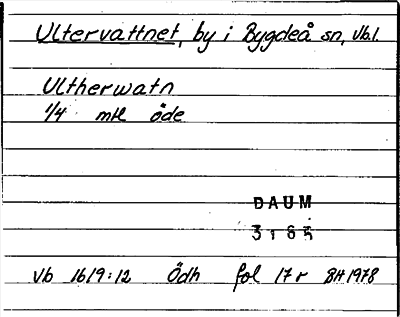 Ultervattnet, by i Bygdeå sn, Vb.l.
Ultherwatn
1/4 mtl öde
DAUM
3185
Vb 1619:12 Ödh fol 17r BH 1978